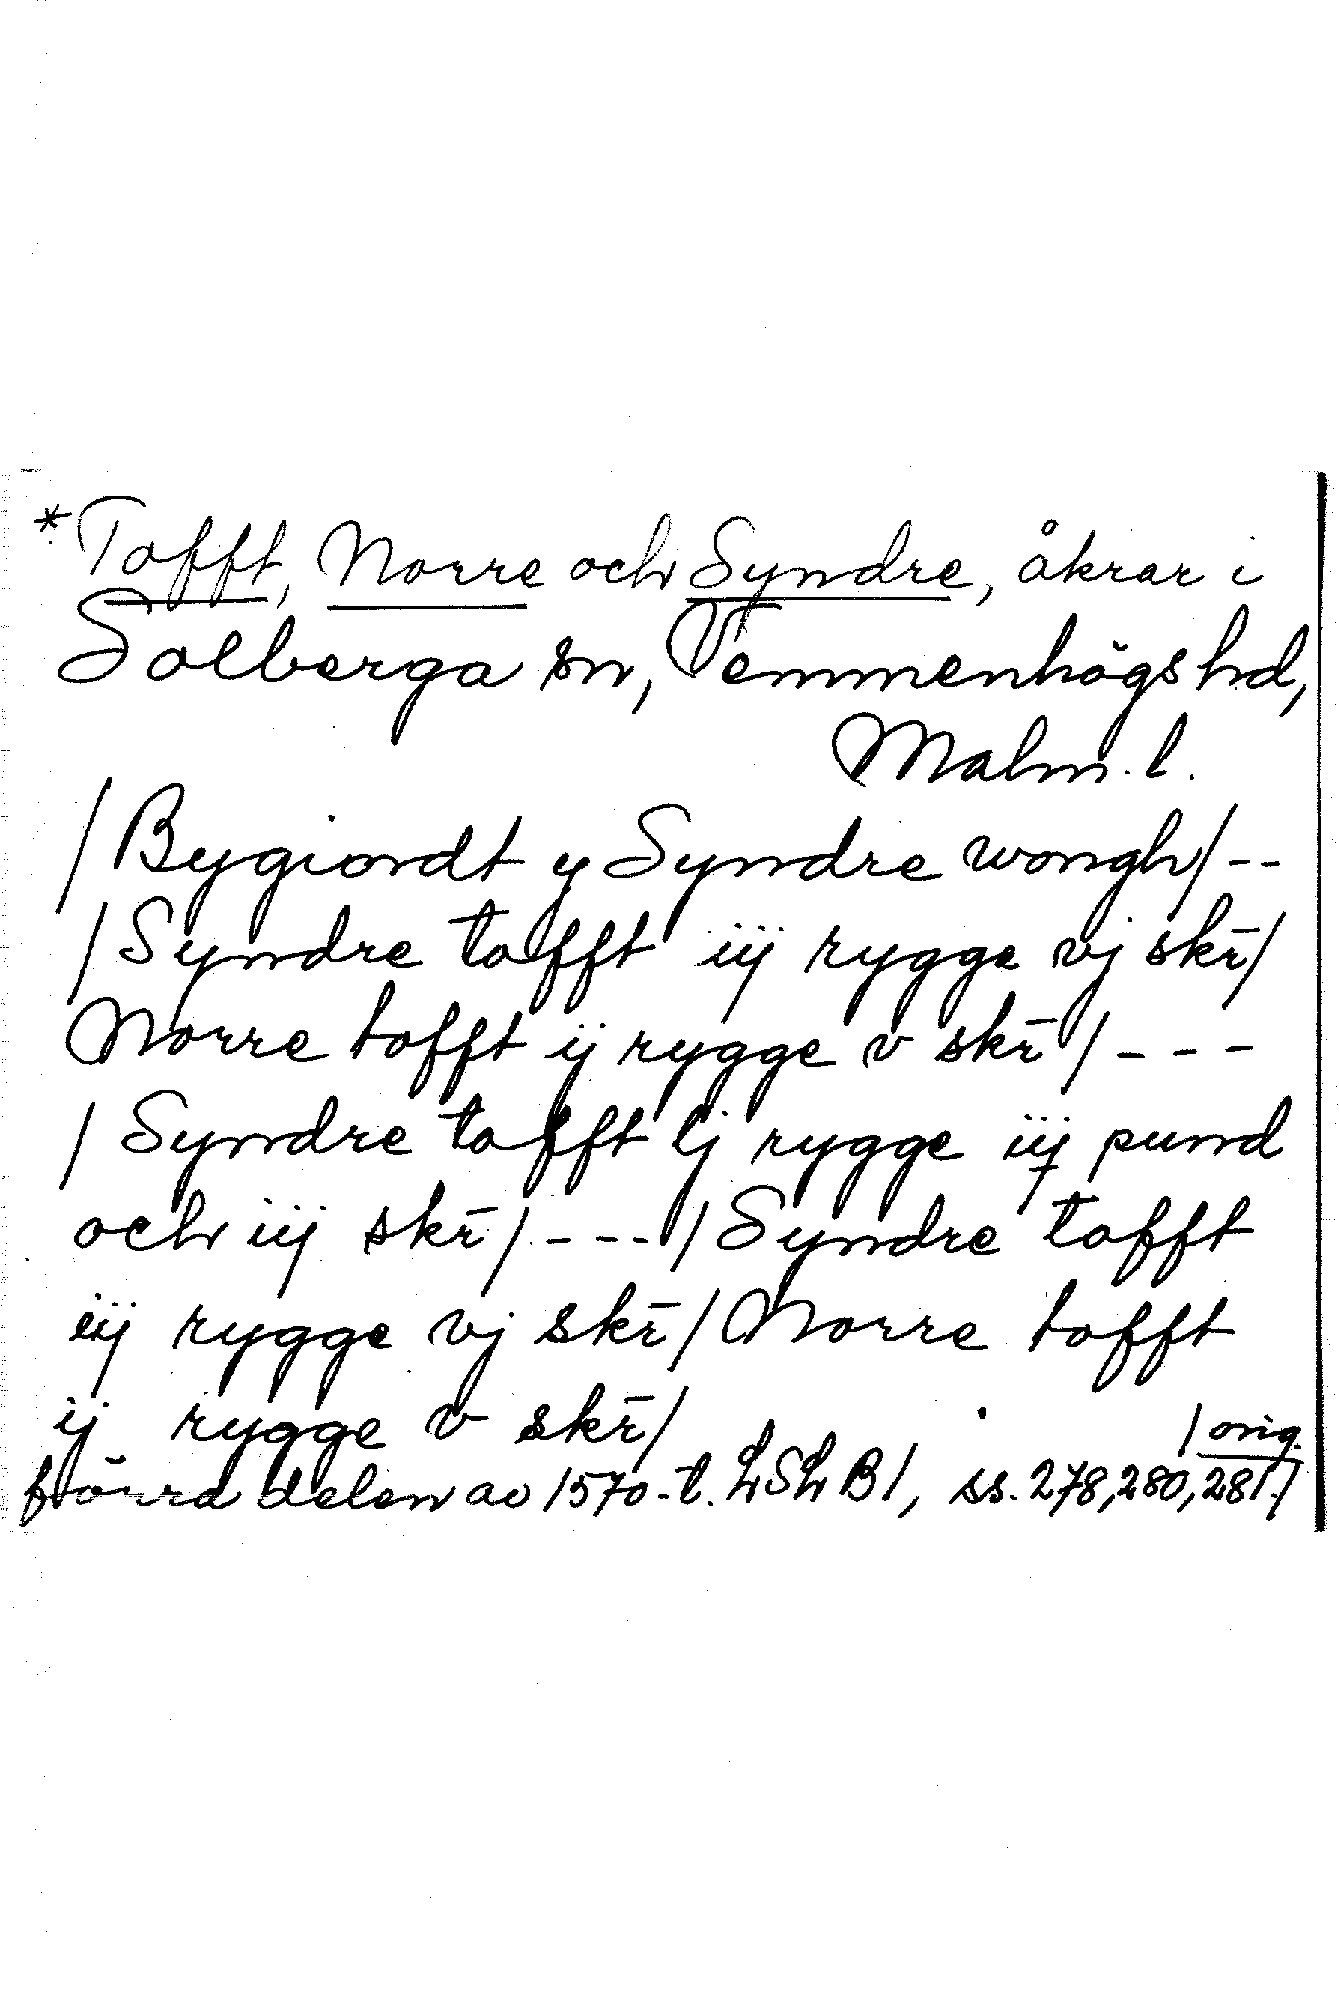 *Tofft, Norre och Syndre, åkrar i
Solberga sn, Vemmenhögs hd,
Malm. l.
/Bygiordt y Syndre wongh/--
/Syndre tofft iij rygge vj skr̄/
Norre tofft ij rygge v skr̄/---
/Syndre tofft lj rygge iij pund
och iij skr̄/---/Syndre tofft
iij rygge vj skr̄/Norre tofft
ij rygge v skr̄/
/orig.
förra delen av 1570-t. LSL B1, ss. 278, 280, 281./